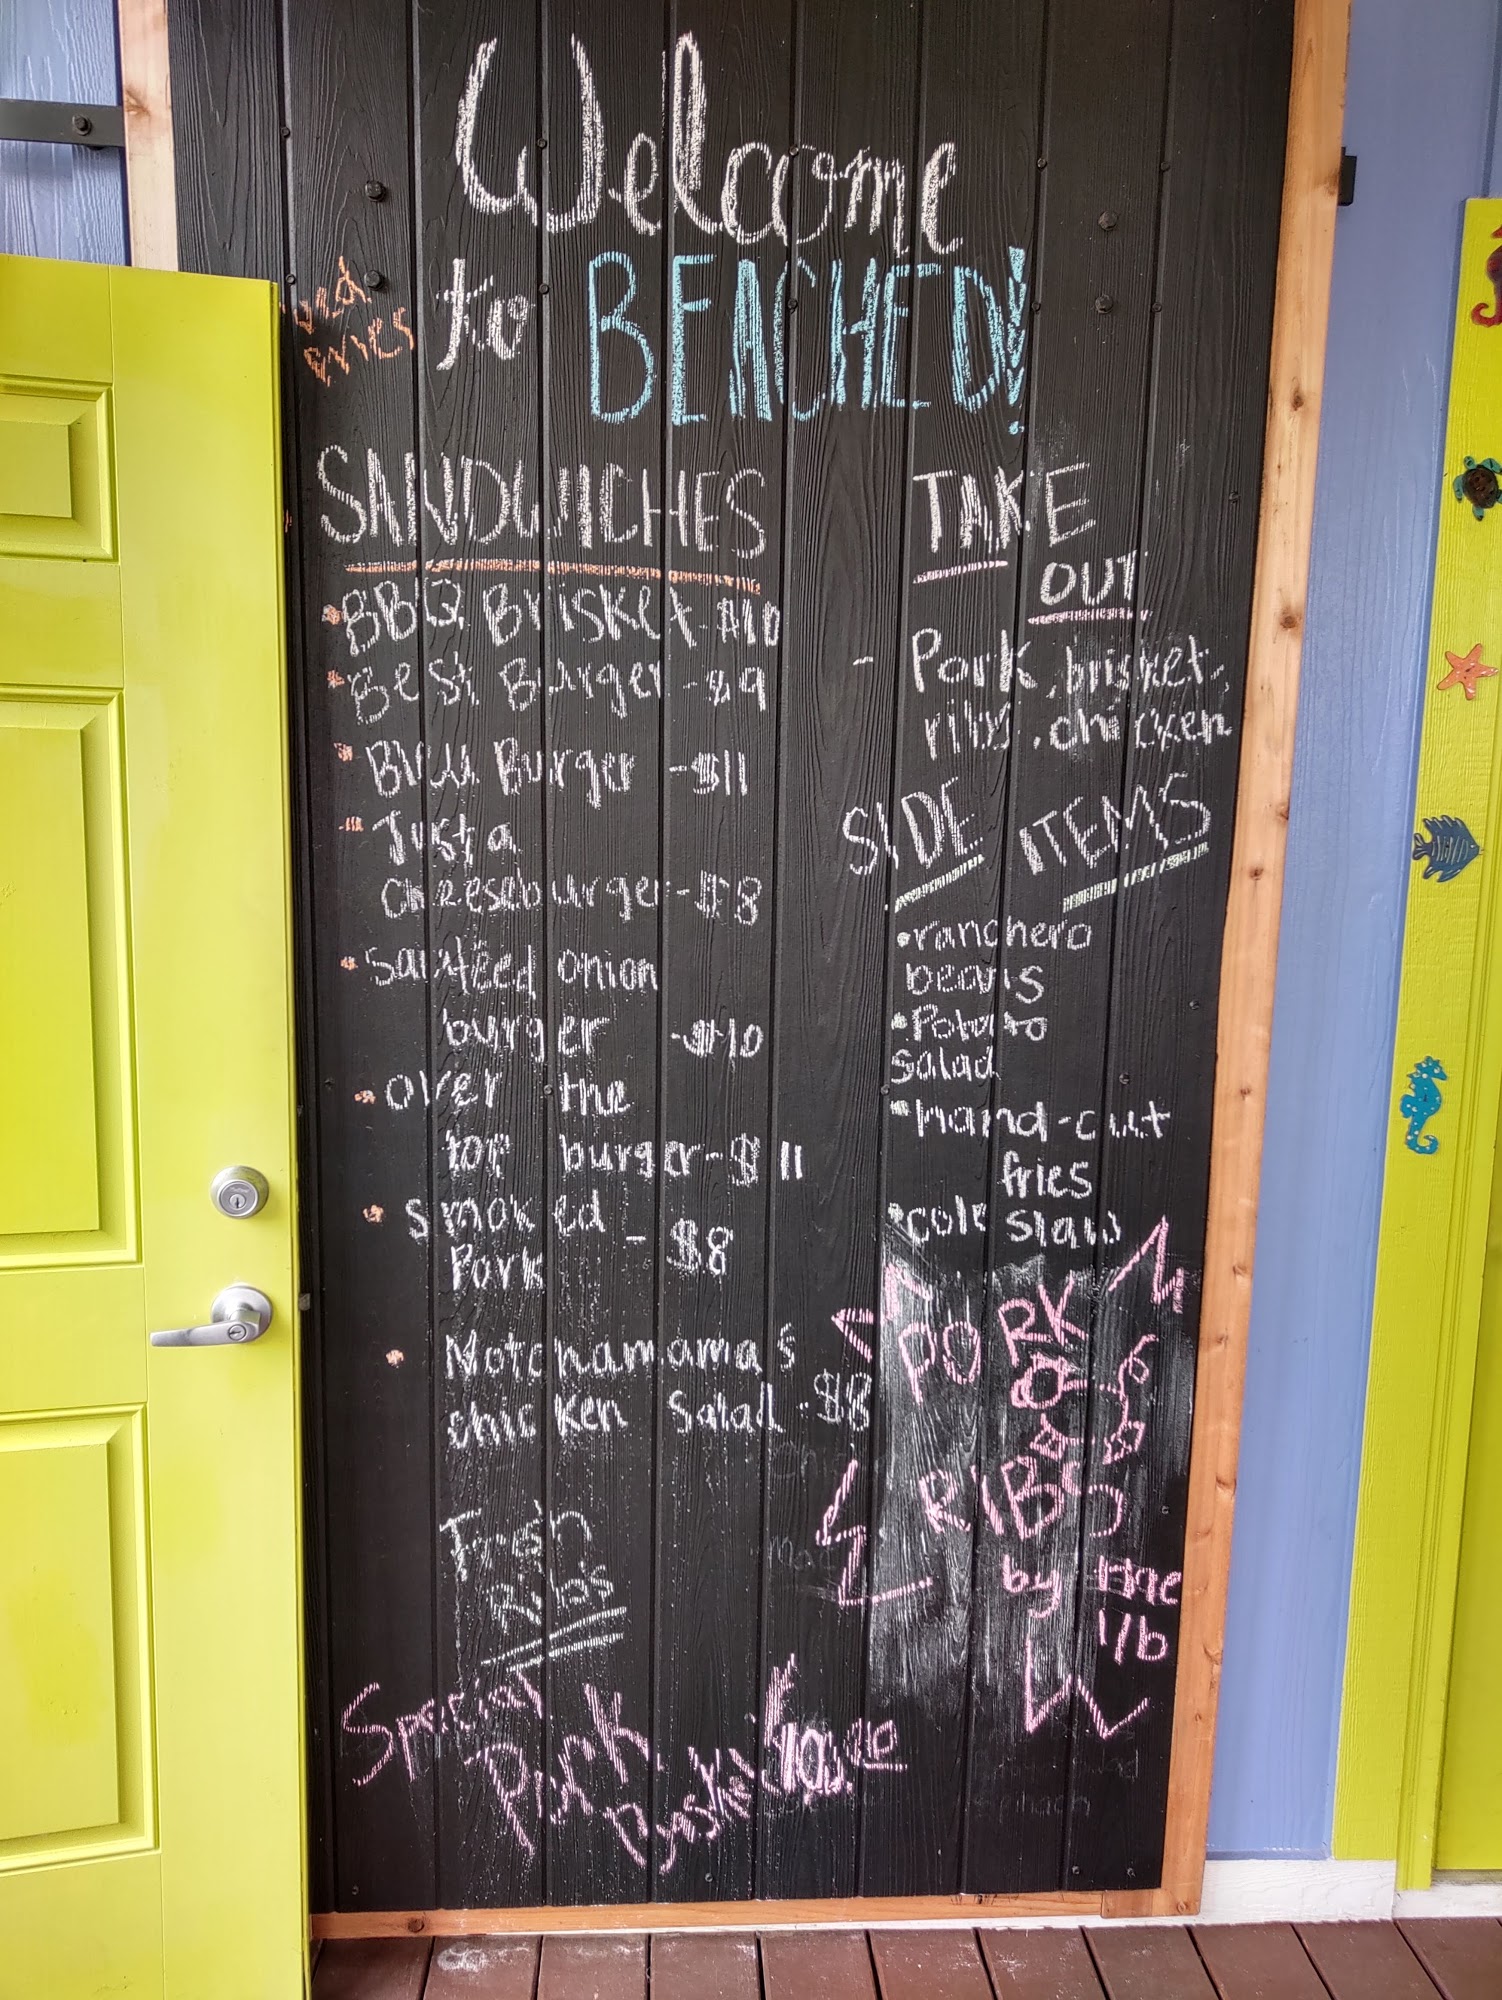 Welcome
to BEACHED!
SANDWICHES
BBQ Brisket-$10
Best Burger-$9
Bleu Burger-$11
Just a
cheeseburger-$8
sautéed onion
burger -$10
over the
top burger-$11
smoked
Pork - $8
Notchamama's
chicken salad-$8
Fresh
Rib's
Special
Pork
TAKE
OUT
- Pork, brisket,
ribs, chicken
SIDE ITEMS
•ranchero
beans
•Potato
salad
•hand-cut
fries
•cole slaw
PORK
RIBS
by the
lb